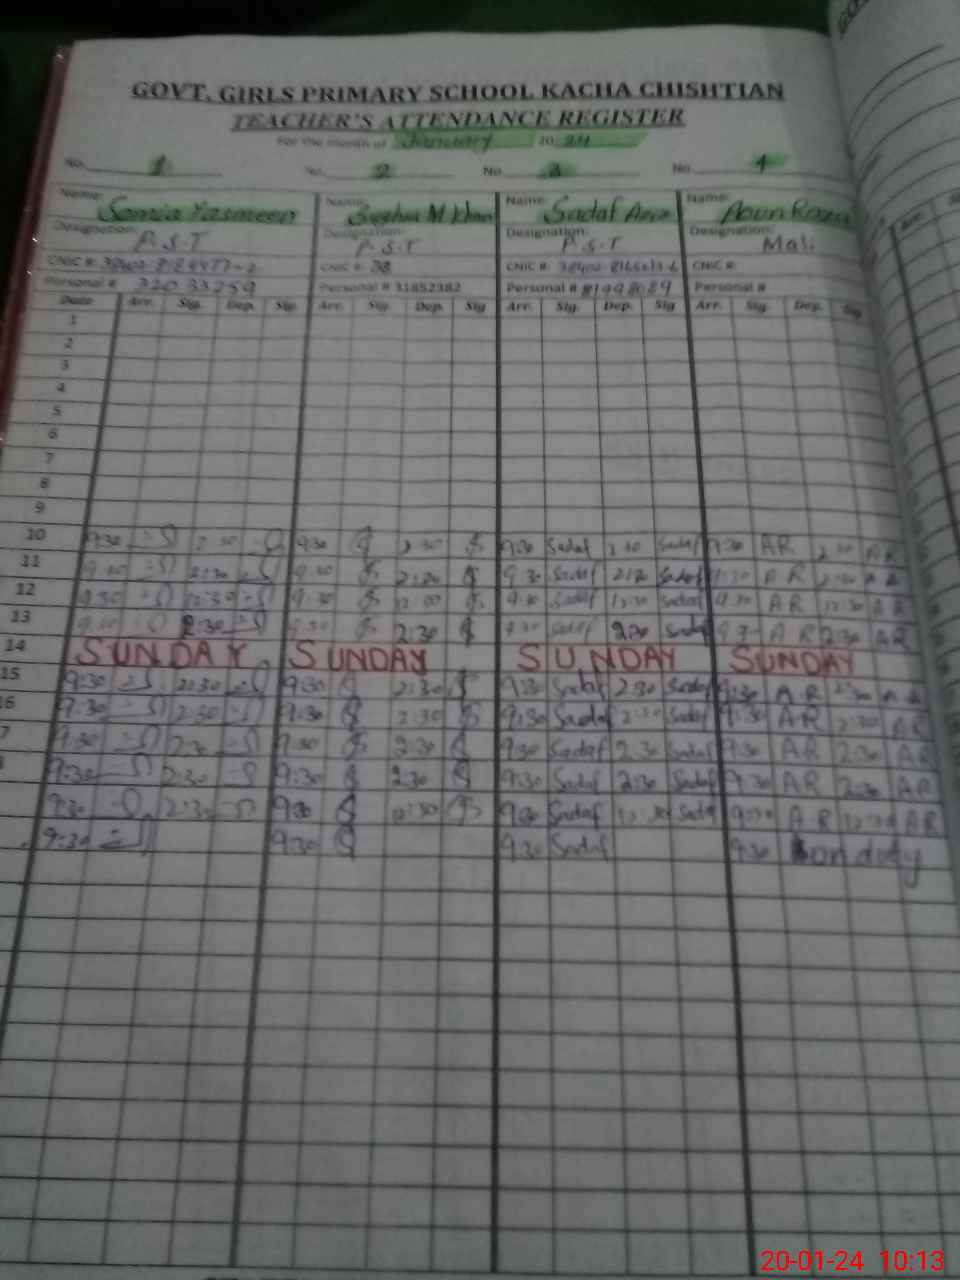 GOVT. GIRLS PRIMARY SCHOOL KACHA CHISHTIAN
TEACHER'S ATTENDANCE REGISTER
For the month of January 20 24
No. 1 No. 2 No. 3 No. 4
Name: Samia Yasmeen Name: M Khan Name: Sadaf Name: Aoun Raza
Designation: P.S.T Designation: P.S.T Designation: P.S.T Designation: Mali
CNIC #: CNIC #: 38 CNIC #: CNIC #:
Personal # 32033259 Personal # 31852382 Personal # Personal #
Date Arr. Sig. Dep. Sig. Arr. Sig. Dep. Sig Arr. Sig. Dep. Sig. Arr. Sig. Dep. Sig
1
2
3
4
5
6
7
8
9
10 9:30 2:30 9:30 2:30 9:30 Sadaf 2:30 Sadaf 9:30 AR 2:30 AR
11 9:30 2:30 9:30 2:30 9:30 Sadaf 2:30 Sadaf 9:30 AR 2:30 AR
12 9:30 12:30 9:30 9:30 Sadaf 12:30 Sadaf 9:30 AR 12:30 AR
13 2:30 9:30 2:30 9:30 Sadaf 2:30 Sadaf 9:30 AR 2:30 AR
14 SUNDAY SUNDAY SUNDAY SUNDAY
15 9:30 2:30 9:30 2:30 9:30 Sadaf 2:30 Sadaf 9:30 A.R 2:30 AR
6 9:30 2:30 9:30 2:30 9:30 Sadaf 2:30 Sadaf 9:30 AR 2:30 AR
7 9:30 2:30 9:30 2:30 9:30 Sadaf 2:30 Sadaf 9:30 AR 2:30 AR
9:30 2:30 9:30 2:30 9:30 Sadaf 2:30 Sadaf 9:30 AR 2:30 AR
9:30 2:30 9:30 12:30 9:30 Sadaf 12:30 Sadaf 9:30 A.R 12:30 AR
9:30 9:30 9:30 Sadaf 9:30 on duty
20-01-24 10:13